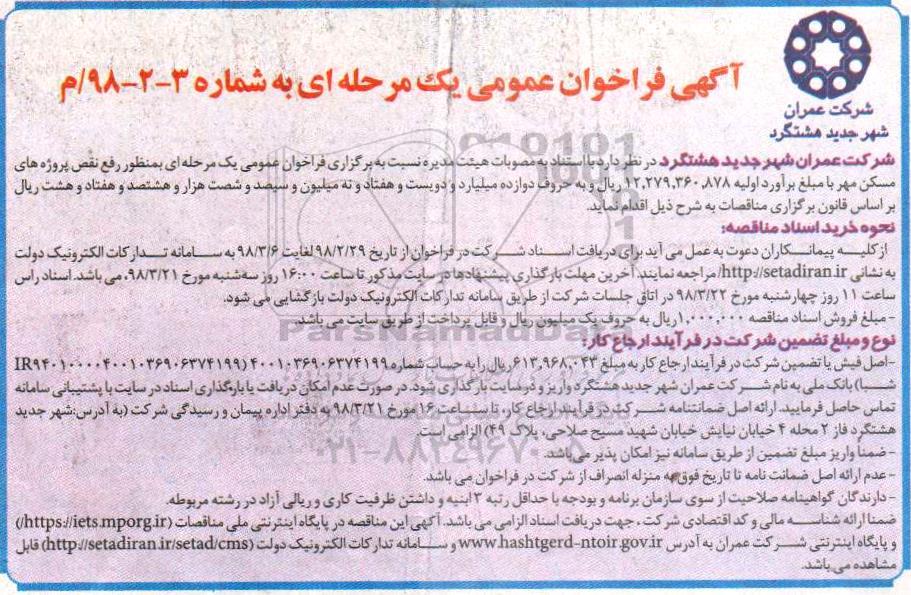 شرکت عمران
شهر جدید هشتگرد
آگهی فراخوان عمومی یک مرحله ای به شماره ۳-۲-۹۸/م
شرکت عمران شهر جدید هشتگرد در نظر دارد با استناد به مصوبات هیئت مدیره نسبت به برگزاری فراخوان عمومی یک مرحله ای بمنظور رفع نقص پروژه های
مسکن مهر با مبلغ برآورد اولیه ۱۲,۲۷۹,۳۶۰,۸۷۸ ریال و به حروف دوازده میلیارد و دویست و هفتاد و نه میلیون و سیصد و شصت هزار و هشتصد و هفتاد و هشت ریال
بر اساس قانون برگزاری مناقصات به شرح ذیل اقدام نماید.
نحوه خرید اسناد مناقصه:
از کلیه پیمانکاران دعوت به عمل می آید برای دریافت اسناد شرکت در فراخوان از تاریخ ۹۸/۲/۲۹ لغایت ۹۸/۳/۶ به سامانه تدارکات الکترونیک دولت
به نشانی http://setadiran.ir/ مراجعه نمایند. آخرین مهلت بارگذاری پیشنهادها در سایت مذکور تا ساعت ۱۶:۰۰ روز سه شنبه مورخ ۹۸/۳/۲۱، می باشد. اسناد راس
ساعت ۱۱ روز چهارشنبه مورخ ۹۸/۳/۲۲ در اتاق جلسات شرکت از طریق سامانه تدارکات الکترونیک دولت بازگشایی می شود.
- مبلغ فروش اسناد مناقصه ۱,۰۰۰,۰۰۰ ریال به حروف یک میلیون ریال و قابل پرداخت از طریق سایت می باشد.
نوع و مبلغ تضمین شرکت در فرآیند ارجاع کار:
-اصل فیش یا تضمین شرکت در فرآیند ارجاع کار به مبلغ ۶۱۳,۹۶۸,۰۴۳ ریال را به حساب شماره ۴۰۰۱۰۳۶۹۰۶۳۷۴۱۹۹ (IR۹۴۰۱۰۰۰۰۴۰۰۱۰۳۶۹۰۶۳۷۴۱۹۹
شبا) بانک ملی به نام شرکت عمران شهر جدید هشتگرد واریز و در سایت بارگذاری شود. در صورت عدم امکان دریافت یا بارگذاری اسناد در سایت با پشتیبانی سامانه
تماس حاصل فرمایید. ارائه اصل ضمانتنامه شرکت در فرآیند ارجاع کار، تا ساعت ۱۶ مورخ ۹۸/۳/۲۱ به دفتر اداره پیمان و رسیدگی شرکت (به آدرس:شهر جدید
هشتگرد فاز ۲ محله ۴ خیابان نیایش خیابان شهید مسیح صلاحی، پلاک ۴۹) الزامی است.
- ضمنا واریز مبلغ تضمین از طریق سامانه نیز امکان پذیر می باشد.
- عدم ارائه اصل ضمانت نامه تا تاریخ فوق به منزله انصراف از شرکت در فراخوان می باشد.
- دارندگان گواهینامه صلاحیت از سوی سازمان برنامه و بودجه با حداقل رتبه ۳ ابنیه و داشتن ظرفیت کاری و ریالی آزاد در رشته مربوطه.
ضمنا ارائه شناسه مالی و کد اقتصادی شرکت، جهت دریافت اسناد الزامی می باشد. آگهی این مناقصه در پایگاه اینترنتی ملی مناقصات (https://iets.mporg.ir/)
و پایگاه اینترنتی شرکت عمران به آدرس www.hashtgerd-ntoir.gov.ir و سامانه تدارکات الکترونیک دولت (http://setadiran.ir/setad/cms) قابل
مشاهده می باشد.
ParsNamadData
۰۲۱-۸۸۳۴۹۶۷۰